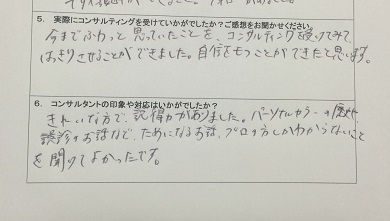 5. 実際にコンサルティングを受けていかがでしたか？ご感想をお聞かせください。
今までふわっと思っていたことを、コンサルティングを受けてみて、
はっきりさせることができました。自信をもつことができたと思います。
6. コンサルタントの印象や対応はいかがでしたか？
きれいな方で、説得力がありました。パーソナルカラーの歴史や
誤診のお話など、ためになるお話、プロの方しかわからないこと
を聞けてよかったです。